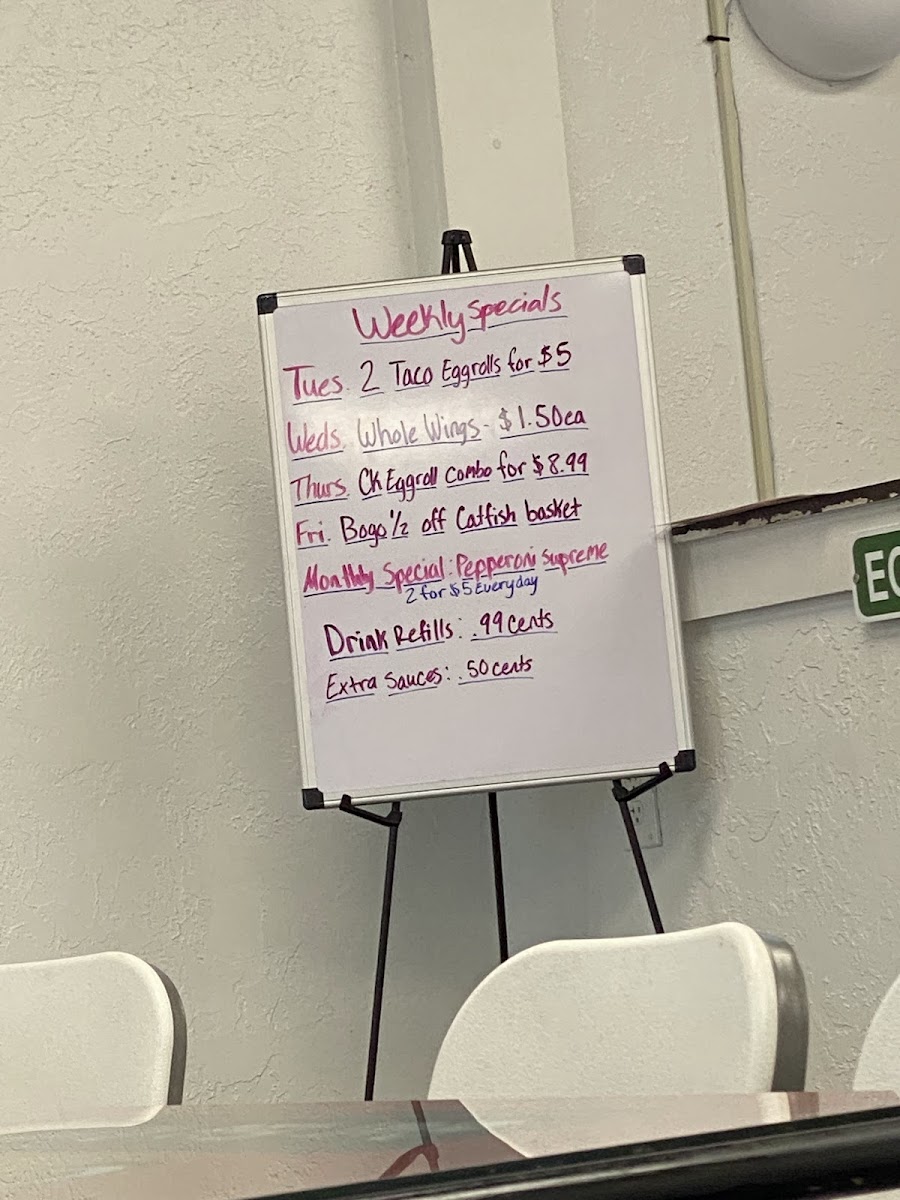 Weekly Specials
Tues. 2 Taco Eggrolls for $5
Weds. Whole Wings - $1.50ea
Thurs. Ck Eggroll combo for $8.99
Fri. Bogo 1/2 off Catfish basket
Monthly Special: Pepperoni Supreme
2 for $5 Everyday
Drink Refills: .99 cents
Extra Sauces: .50 cents